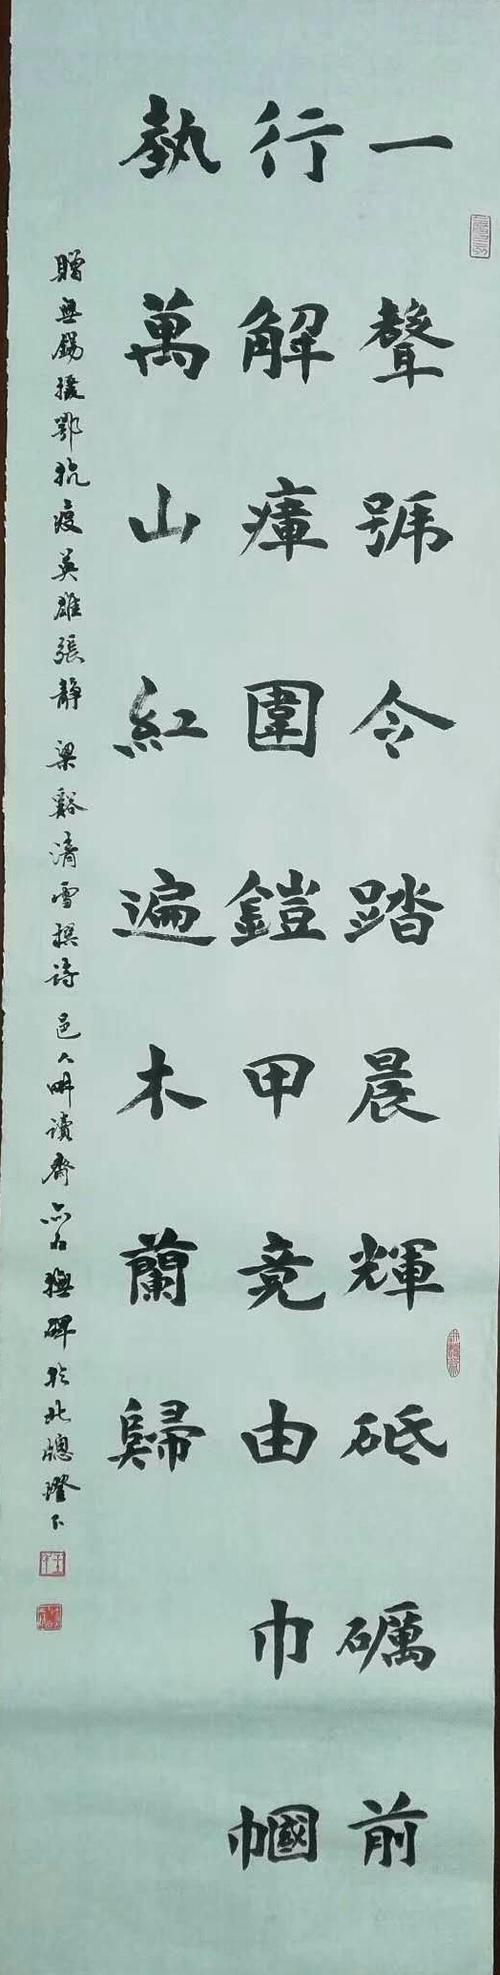 一聲號令踏晨輝砥礪前
行解瘴圍鎧甲竞由巾幗
執萬山紅遍木蘭歸
贈無錫援鄂抗疫英雄張静 梁谿清雪撰詩 邑人畊讀齋 撫碑於北牕燈下